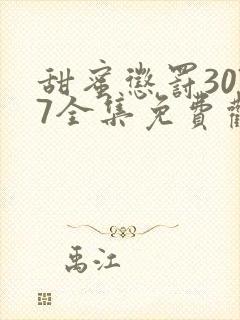 甜蜜懲罰30
7全集免費
禹江